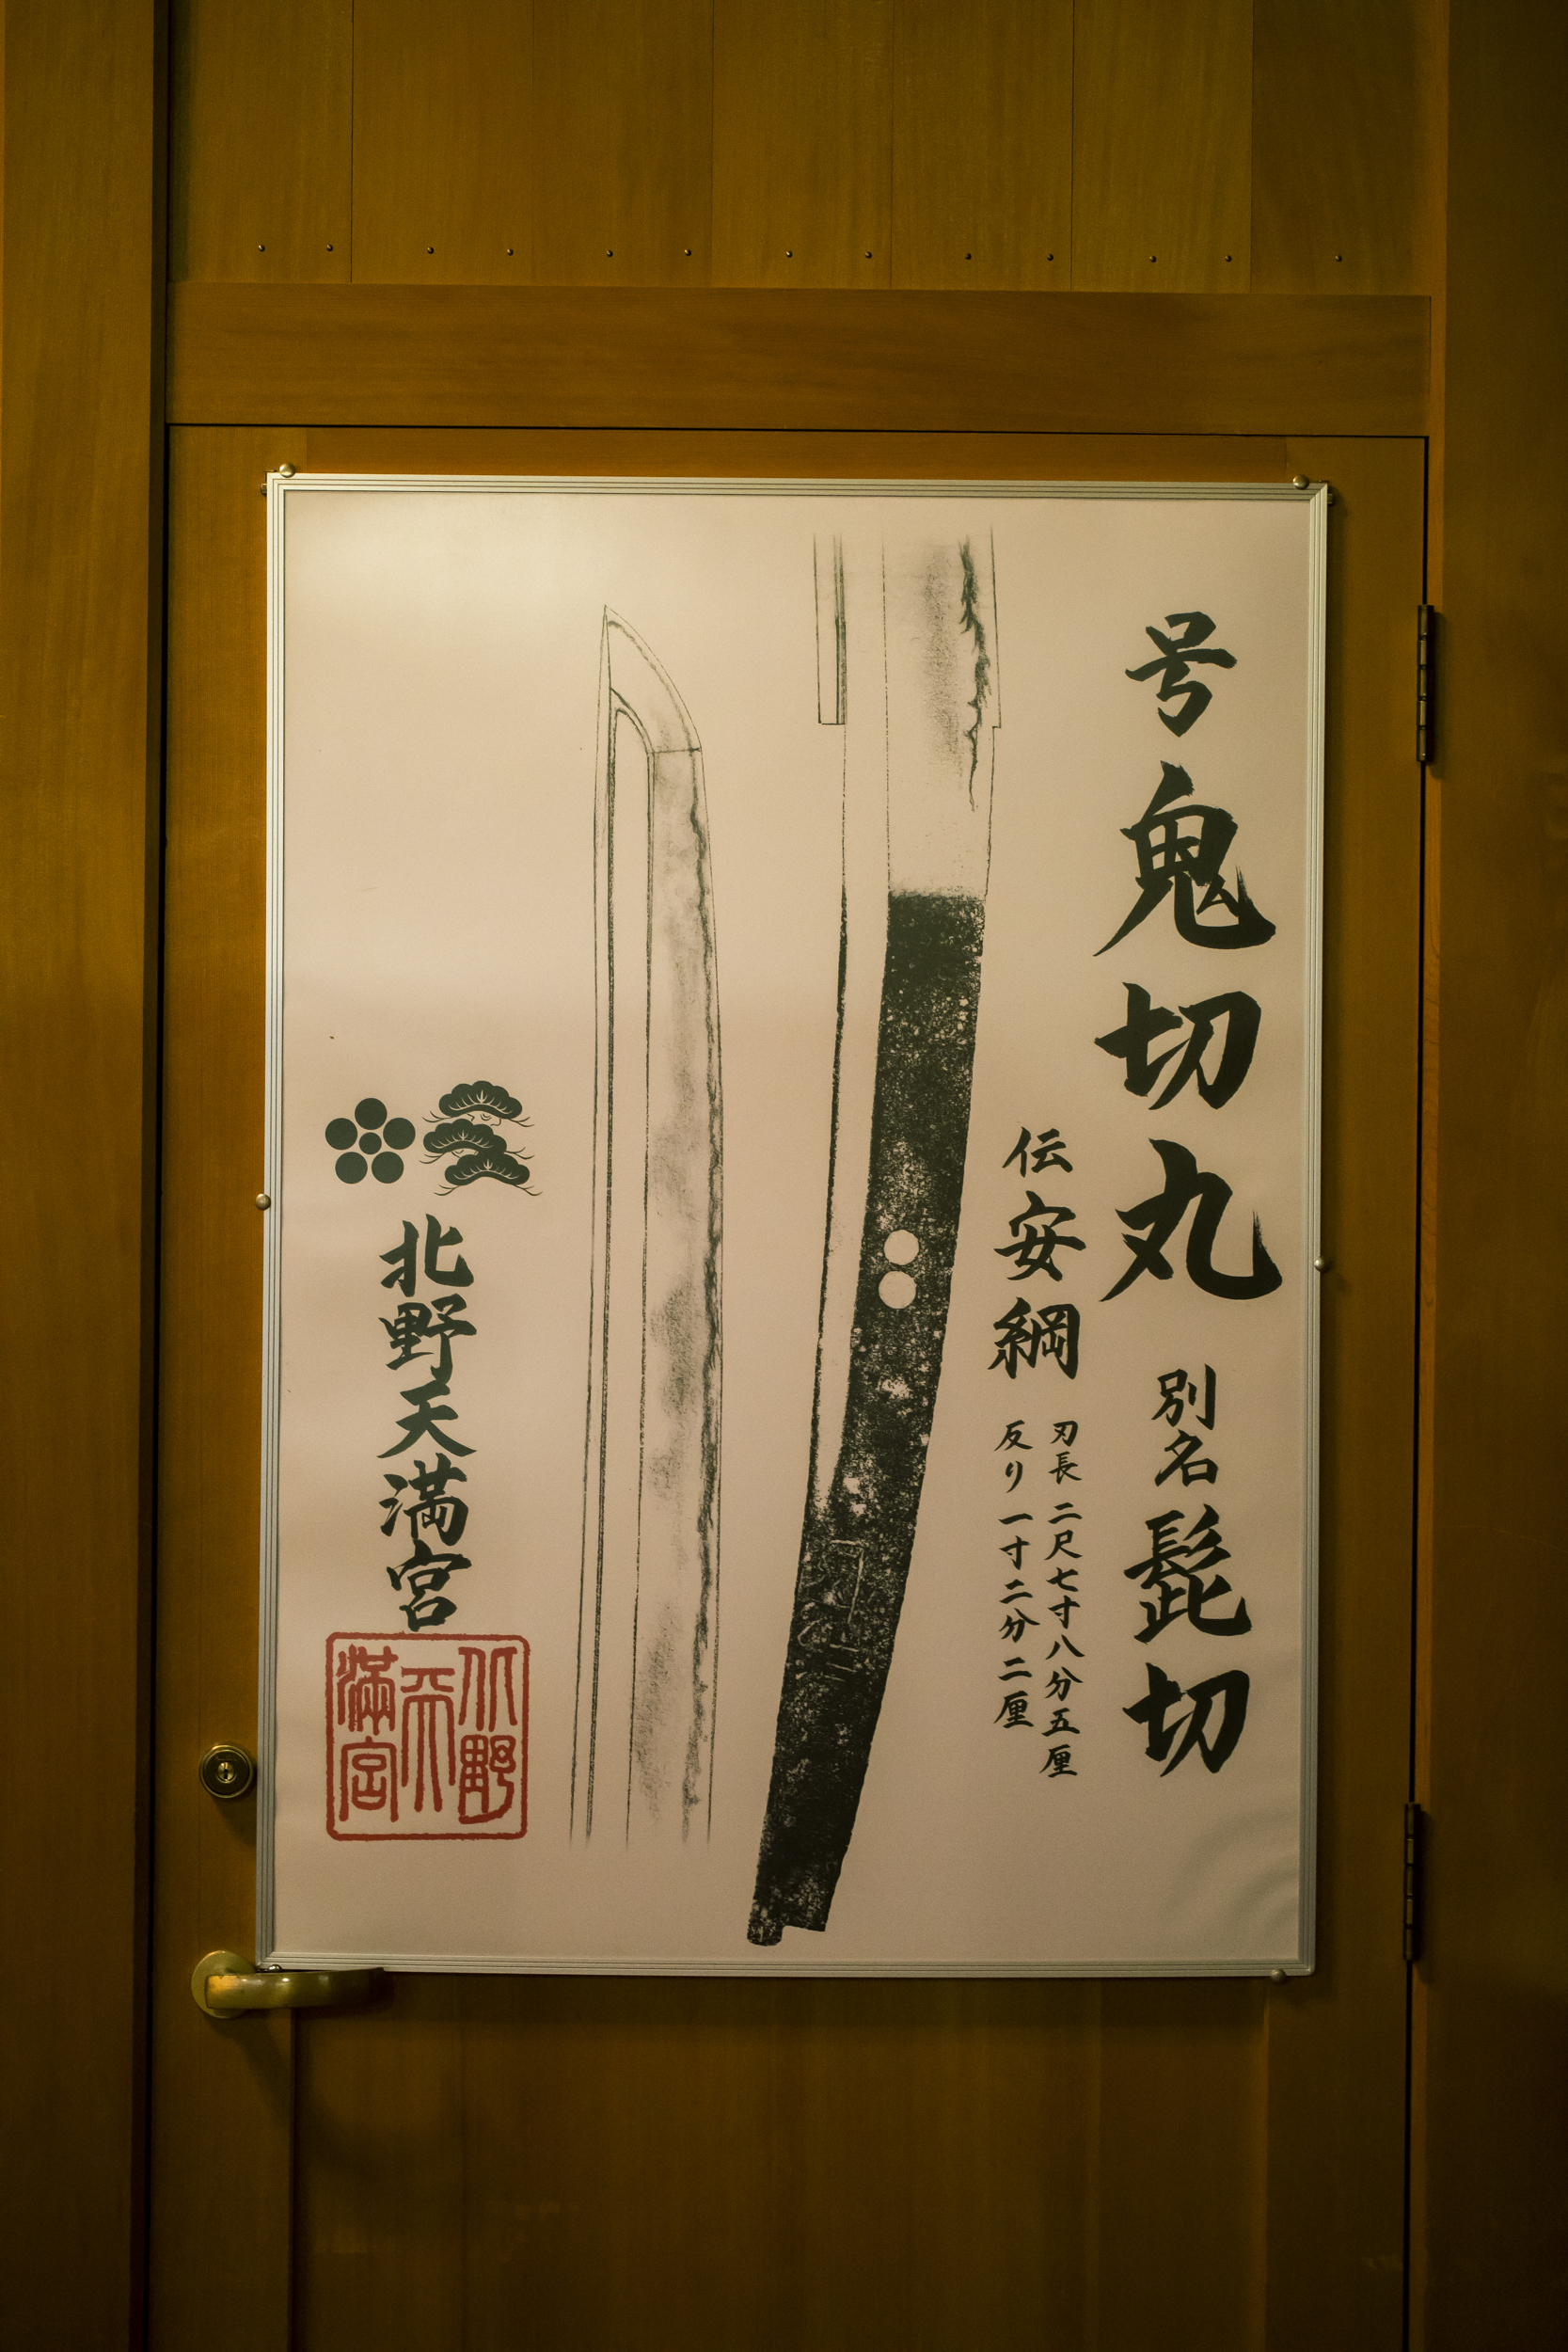 号 鬼切丸 別名 髭切
伝 安綱
刃長 二尺七寸八分五厘
反り 一寸二分二厘
北野天満宮
北野天満宮